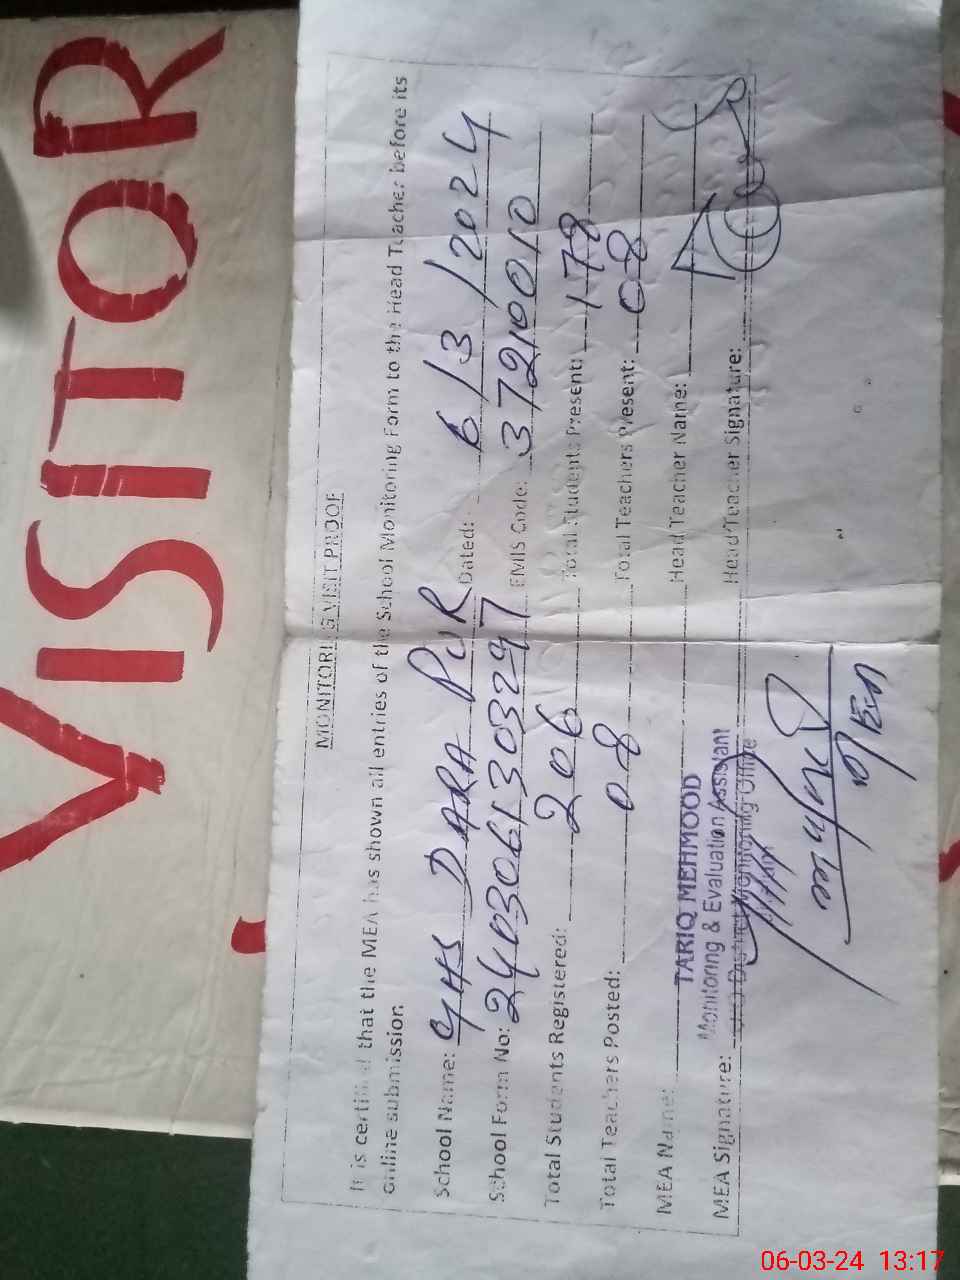 VISITOR
MONITORING VISIT PROOF
It is certified that the MEA has shown all entries of the School Monitoring Form to the Head Teacher before its
online submission.
School Name: GHS DARA PUR Dated: 6/3/2024
School Form No: 2403061303297 EMIS Code: 37210010
Total Students Registered: 206 Total Students Present: 178
Total Teachers Posted: 08 Total Teachers Present: 08
MEA Name: TARIQ MEHMOOD Head Teacher Name:
Monitoring & Evaluation Assistant
MEA Signature: District Monitoring Office Head Teacher Signature:
06-03-24 13:17